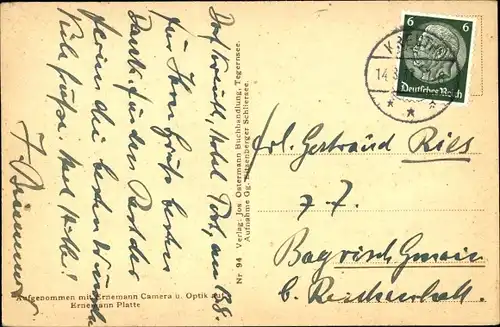 Dorf Kreuth, Hotel Post, am 13.8.
für Ihren Gruß besten
Dank. für den Rest der
Ferien die besten Wünsche
Viele Grüße. Heil Hitler!
Nr 94 Verlag: Jos Ostermann Buchhandlung, Tegernsee.
Aufnahme Gg. Hitzenberger Schliersee.
Aufgenommen mit Ernemann Camera u. Optik auf
Ernemann Platte
6 6
Deutsches Reich
14.3
Frl. Gertraud Ries
z. Z.
Bayrisch Gmain
b. Reichenhall.